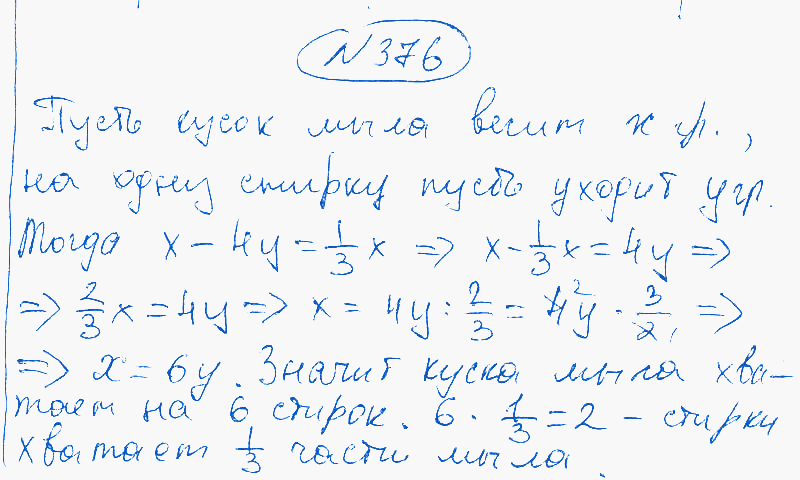 N 376
Пусть кусок мыла весит x гр.,
на одну стирку пусть уходит y гр.
Тогда x - 4y = 1/3 x => x - 1/3 x = 4y =>
=> 2/3 x = 4y => x = 4y : 2/3 = 4²y · 3/2 =>
=> x = 6y. Значит куска мыла хва-
тает на 6 стирок. 6 · 1/3 = 2 - стирки
хватает 1/3 части мыла.